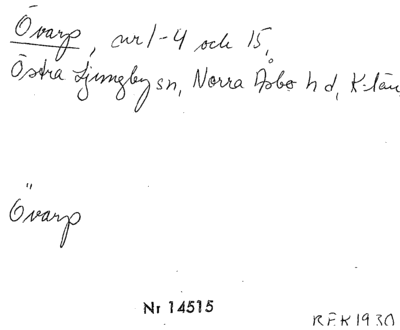 Övarp, nr 1-4 och 15,
Östra Ljungby sn, Norra Åsbo hd, K-län
Övarp
Nr 14515
REK 1930